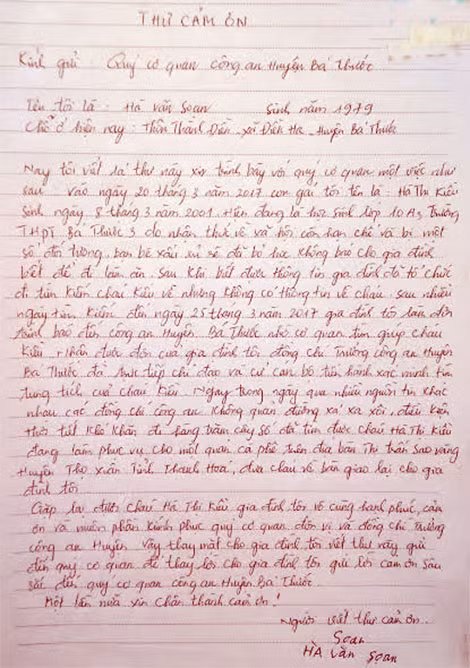 THƯ CẢM ƠN
Kính gửi : Quý cơ quan công an Huyện Bá Thước
Tên tôi là : Hà Văn Soan Sinh năm 1979
Chỗ ở hiện nay : Thôn Thành Điền - xã Điền Hạ - Huyện Bá Thước
Nay tôi viết lá thư này xin trình bày với quý cơ quan một việc như
sau : vào ngày 20 tháng 3 năm 2017 con gái tôi tên là : Hà Thị Kiều
Sinh ngày 8 tháng 3 năm 2001. Hiện đang là học sinh lớp 10 A3 Trường
THPT Bá Thước 3 do nhận thức về xã hội còn hạn chế và bị một
số đối tượng, bạn bè xấu xúi sẽ đã bỏ học không báo cho gia đình
biết để đi làm ăn. Sau khi biết được thông tin gia đình đã tổ chức
đi tìm kiếm cháu Kiều về nhưng không có thông tin về cháu. sau nhiều
ngày tìm kiếm đến ngày 25 tháng 3 năm 2017 gia đình tôi làm đơn
trình báo đến công an Huyện Bá Thước nhờ cơ quan tìm giúp cháu
Kiều. Nhận được đơn của gia đình tôi, đồng chí Trưởng công an Huyện
Bá Thước đã trực tiếp chỉ đạo và cử cán bộ tiến hành xác minh tìm
tung tích của cháu Kiều. Ngay trong ngày qua nhiều nguồn tin khác
nhau các đồng chí công an không quản đường xá xa xôi, điều kiện
thời tiết khó khăn đi hàng trăm cây số đã tìm được cháu Hà Thị Kiều
đang làm phục vụ cho một quán cà phê trên địa bàn Thị trấn Sao vàng
Huyện Thọ Xuân Tỉnh Thanh Hoá, đưa cháu về bàn giao lại cho gia
đình tôi
Gặp lại được cháu Hà Thị Kiều gia đình tôi vô cùng hạnh phúc, cảm
ơn và muôn phần kính phục quý cơ quan đơn vị và đồng chí Trưởng
công an Huyện. Vậy thay mặt cho gia đình tôi viết thư này gửi
đến quý cơ quan để thay lời cho gia đình tôi gửi lời cảm ơn sâu
sắc đến quý cơ quan công an Huyện Bá Thước
Một lần nữa xin chân thành cảm ơn !
Người viết thư cảm ơn.
Soan
HÀ Văn Soan